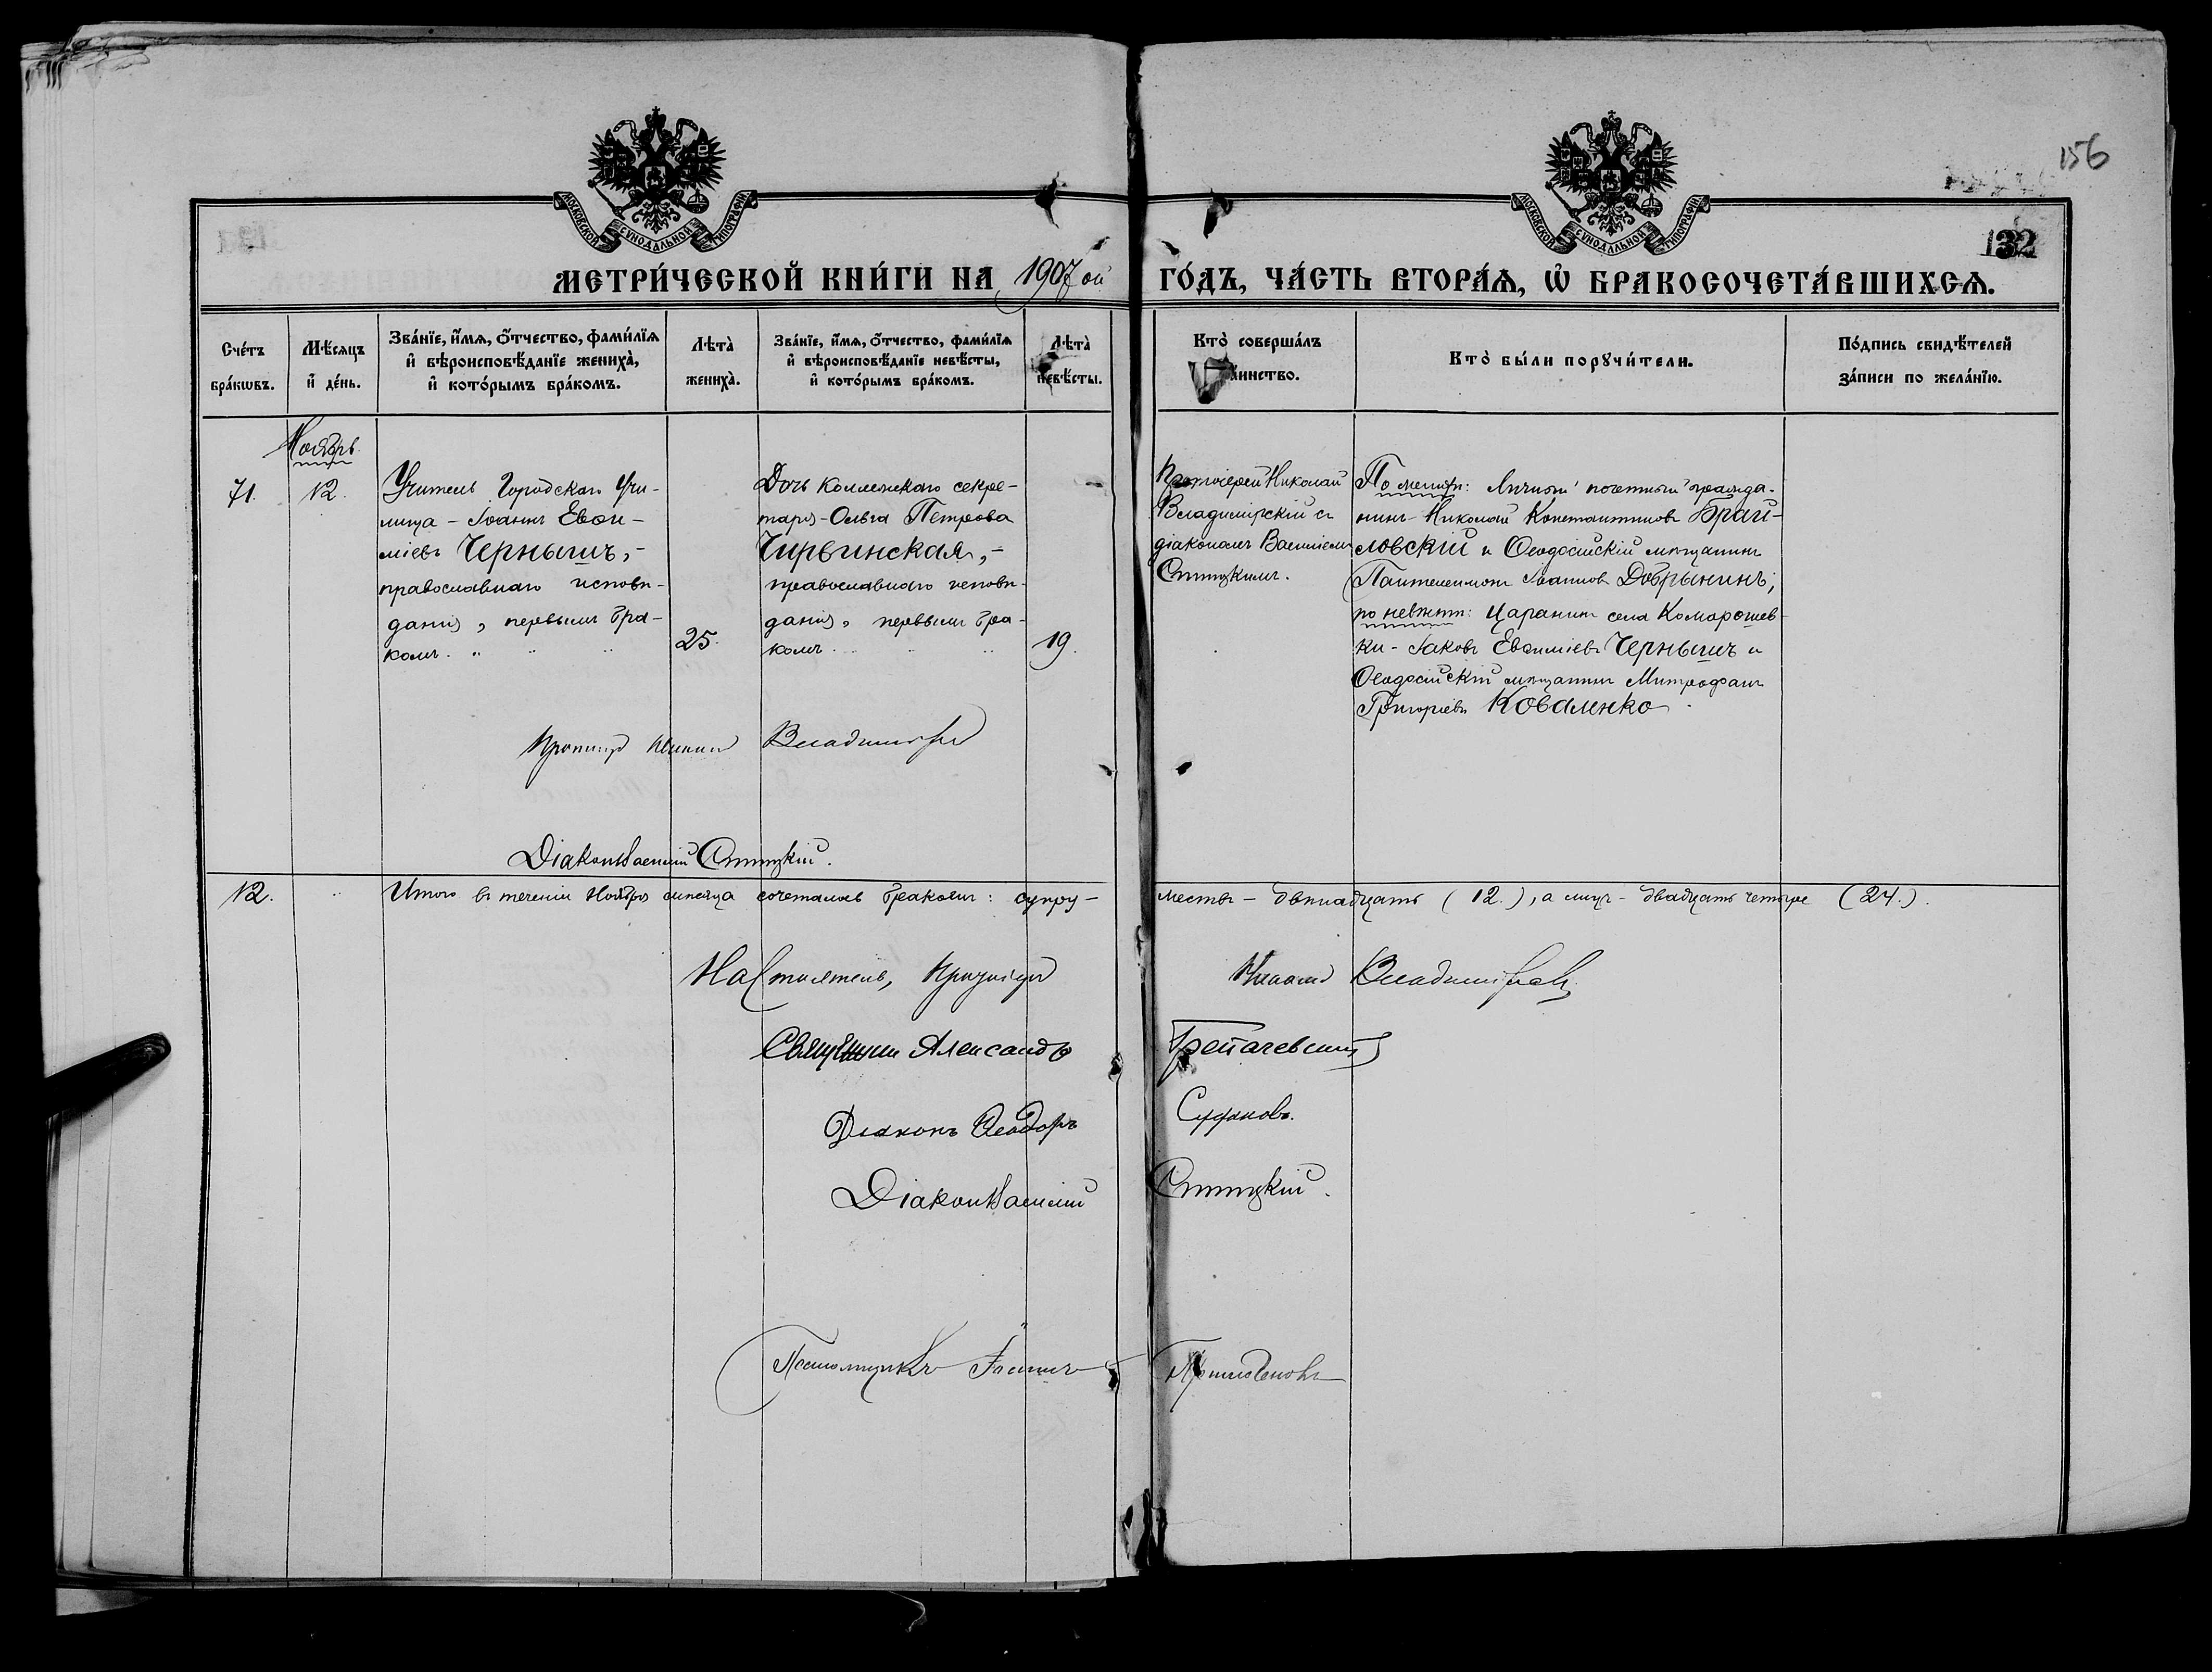 156
132
МОСКОВСКОЙ СУНОДАЛЬНОЙ ТИПОГРАФІИ
МОСКОВСКОЙ СУНОДАЛЬНОЙ ТИПОГРАФІИ
МЕТРИ́ЧЕСКОЙ КНИ́ГИ НА 1907 ой ГО́ДЪ, ЧА́СТЬ ВТОРА́Ѧ, Ѽ БРАКОСОЧЕТА́ВШИХСѦ.
Сче́тъ бра́кѡвъ.
Мѣ́сяцъ и҆ де́нь.
Зва́нїе, и҆́мѧ, ѻ҆́тчество, фами́лїѧ
и҆ вѣроисповѣ́данїе жениха̀,
и҆ кото́рымъ бра́комъ.
Лѣта̀ жениха̀.
Зва́нїе, и҆́мѧ, ѻ҆́тчество, фами́лїѧ
и҆ вѣроисповѣ́данїе невѣ́сты,
и҆ кото́рымъ бра́комъ.
Лѣта̀ невѣ́сты.
Кто̀ соверша́лъ
та́инство.
Кто̀ бы́ли порꙋчи́тели.
По́дпись свидѣ́телей
за́писи по жела́нїю.
Ноябрь.
71.
12.
Учитель Городскаго Учи-
лища - Іоаннъ Евѳи-
міевъ Чернышъ,-
православнаго исповѣ-
данія, первымъ бра-
комъ.
25.
Дочь Коллежскаго секре-
таря - Ольга Петрова
Чирвинская,-
православнаго исповѣ-
данія, первымъ бра-
комъ.
19.
Протоіерей Николай
Владимірскій съ
діакономъ Василіемъ
Стицкимъ.
По женихѣ: Личный почетный гражда-
нинъ - Николай Константиновъ Брай-
ловскій и Ѳеодосійскій мѣщанинъ
Пантелеимонъ Іоанновъ Добрынинъ;
по невѣстѣ: Царанинъ села Комарошев-
ки - Іаковъ Евѳиміевъ Чернышъ и
Ѳеодосійскій мѣщанинъ Митрофанъ
Григоріевъ Коваленко
Протоіерей Николай Владимірскій
Діаконъ Василій Стицкій.
12.
Итого въ теченіи Ноября мѣсяца сочеталось бракомъ: супру-
жествъ - двѣнадцать (12.), а лицъ - двадцать четыре (24.).
Настоятель, Протоіерей Николай Владимірскій
Священникъ Александръ
Діаконъ Ѳеодоръ
Діаконъ Василій Стицкій.
Псаломщикъ